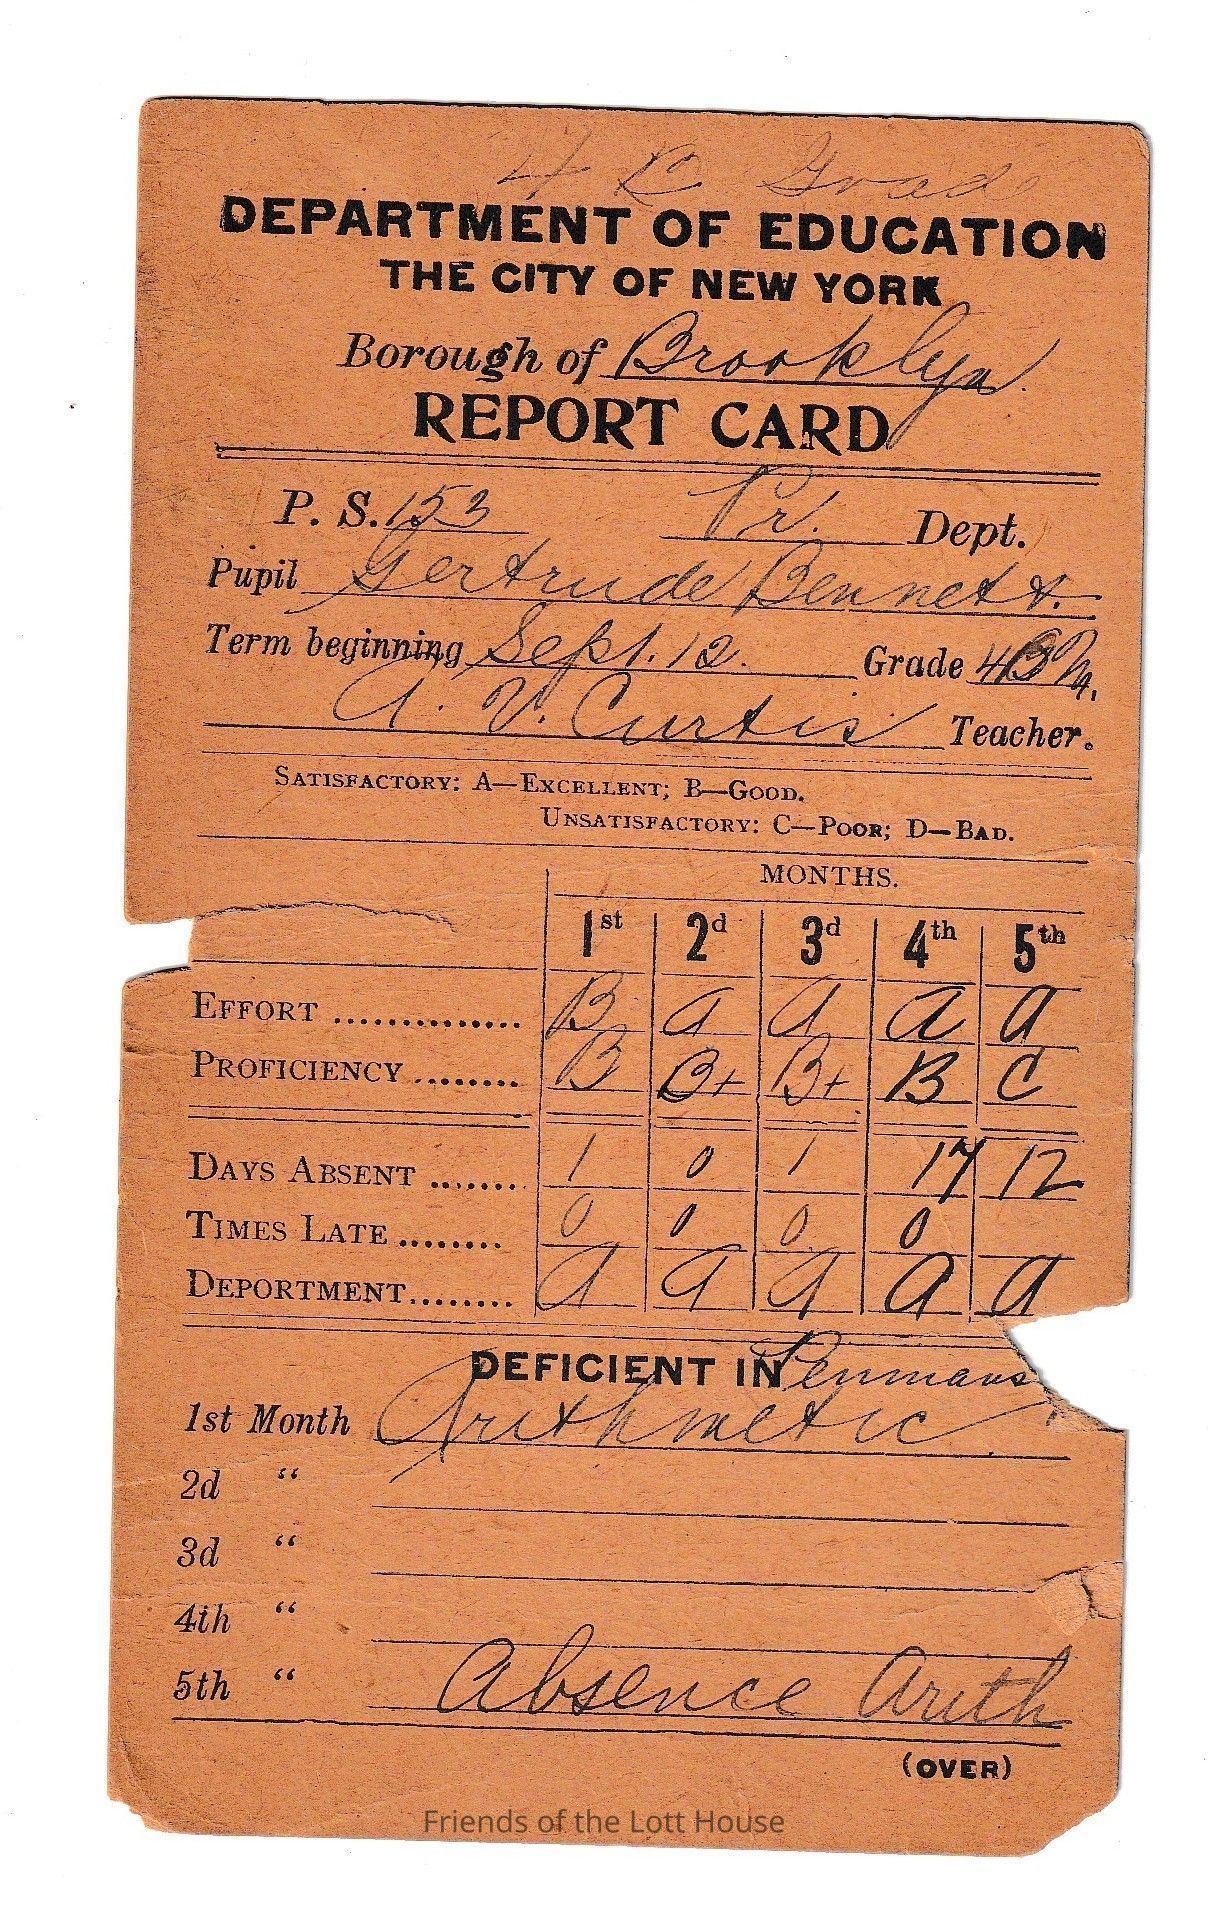 4 Grade
DEPARTMENT OF EDUCATION
THE CITY OF NEW YORK
Borough of Brooklyn
REPORT CARD
P. S. 153 Pr. Dept.
Pupil Gertrude Bennett.
Term beginning Sept. 12. Grade 4B
A. V. Curtis Teacher.
SATISFACTORY: A—EXCELLENT; B—GOOD.
UNSATISFACTORY: C—POOR; D—BAD.
MONTHS.
1st 2d 3d 4th 5th
EFFORT .............. B A A A A
PROFICIENCY ........ B B+ B+ B C
DAYS ABSENT ....... 1 0 1 17 12
TIMES LATE ........ 0 0 0 0
DEPORTMENT ........ A A A A A
DEFICIENT IN Penmans
1st Month Arithmetic
2d "
3d "
4th "
5th " Absence Arith
(OVER)
Friends of the Lott House